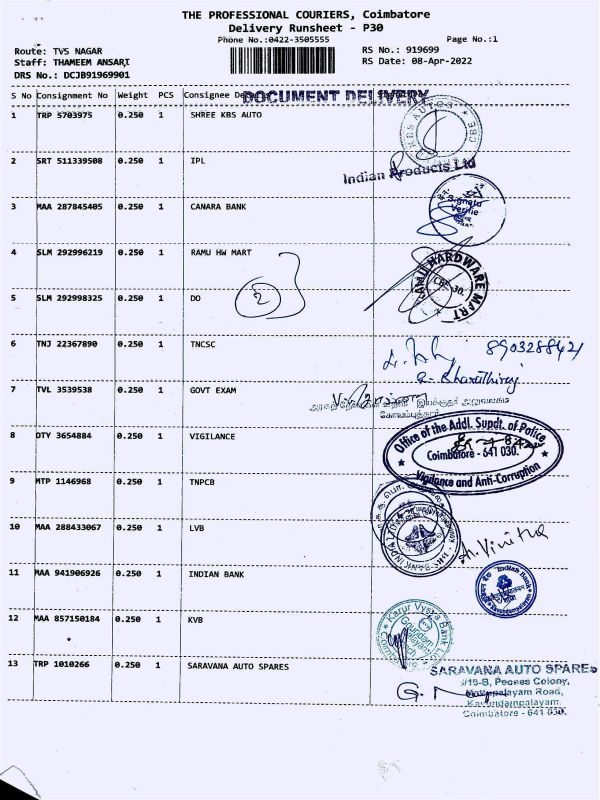 THE PROFESSIONAL COURIERS, Coimbatore
Delivery Runsheet - P30
Phone No.:0422-3505555
Page No.:1
Route: TVS NAGAR
RS No.: 919699
Staff: THAMEEM ANSARI
RS Date: 08-Apr-2022
DRS No.: DCJB91969901
S No Consignment No Weight PCS Consignee
DOCUMENT DELIVERY
1 TRP 5703975 0.250 1 SHREE KBS AUTO
KBS AUTOS CBE
2 SRT 511339508 0.250 1 IPL
Indian Products Ltd
3 MAA 287845405 0.250 1 CANARA BANK
4 SLM 292996219 0.250 1 RAMU HW MART
RAMU HARDWARE MART
CBE-30.
5 SLM 292998325 0.250 1 DO
2
6 TNJ 22367890 0.250 1 TNCSC
8903288421
R. Bharathiraj
7 TVL 3539538 0.250 1 GOVT EXAM
கோயம்புத்தூர்
8 DTY 3654884 0.250 1 VIGILANCE
Office of the Addl. Supdt. of Police
Coimbatore - 641 030.
Vigilance and Anti-Corruption
9 MTP 1146968 0.250 1 TNPCB
10 MAA 288433067 0.250 1 LVB
DBS BANK INDIA
A. Vinitha
11 MAA 941906926 0.250 1 INDIAN BANK
Indian Bank
12 MAA 857150184 0.250 1 KVB
Karur Vysya Bank
13 TRP 1010266 0.250 1 SARAVANA AUTO SPARES
SARAVANA AUTO SPARES
#19-B, Peones Colony,
Road,
Kavundampalayam,
Coimbatore - 641 030.